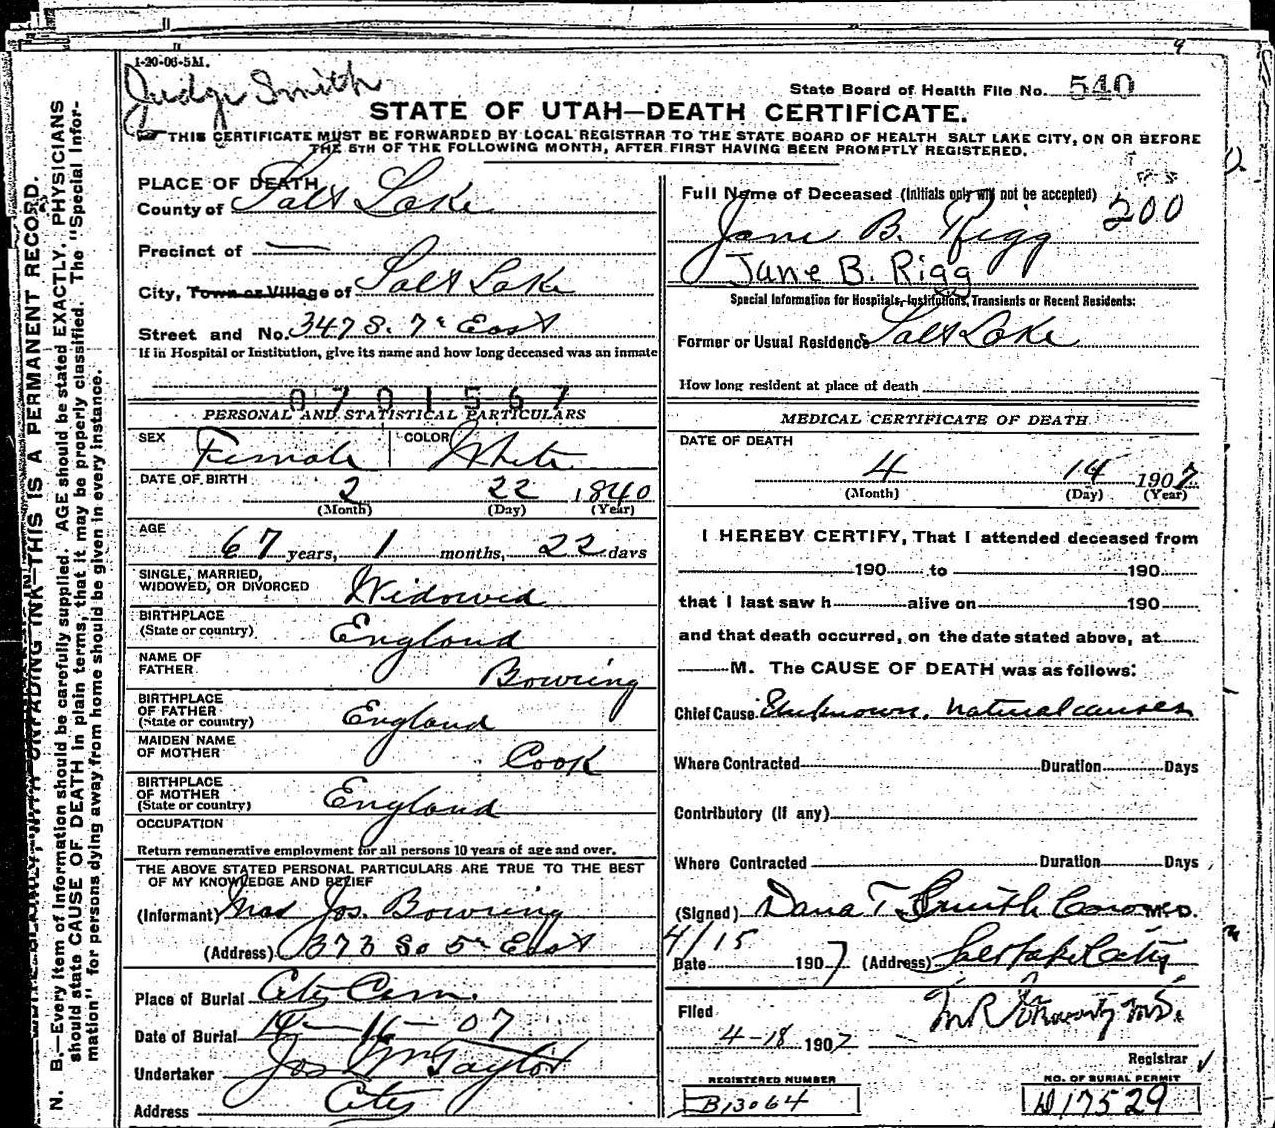 1-20-06-5M.
Judge Smith
State Board of Health File No. 540
STATE OF UTAH—DEATH CERTIFICATE.
THIS CERTIFICATE MUST BE FORWARDED BY LOCAL REGISTRAR TO THE STATE BOARD OF HEALTH SALT LAKE CITY, ON OR BEFORE
THE 5TH OF THE FOLLOWING MONTH, AFTER FIRST HAVING BEEN PROMPTLY REGISTERED.
PLACE OF DEATH
County of Salt Lake
Precinct of —
City, Town or Village of Salt Lake
Street and No. 347 S. 7th East
If in Hospital or Institution, give its name and how long deceased was an inmate
0701567
PERSONAL AND STATISTICAL PARTICULARS
SEX Female COLOR White
DATE OF BIRTH 2 22 1840
(Month) (Day) (Year)
AGE 67 years, 1 months, 22 days
SINGLE, MARRIED,
WIDOWED, OR DIVORCED Widowed
BIRTHPLACE
(State or country) England
NAME OF
FATHER Bowring
BIRTHPLACE
OF FATHER
(State or country) England
MAIDEN NAME
OF MOTHER Cook
BIRTHPLACE
OF MOTHER
(State or country) England
OCCUPATION
Return remunerative employment for all persons 10 years of age and over.
THE ABOVE STATED PERSONAL PARTICULARS ARE TRUE TO THE BEST
OF MY KNOWLEDGE AND BELIEF
(Informant) Mrs Jos. Bowring
(Address) 373 So 5th East
Place of Burial City Cem.
Date of Burial 16—07
Undertaker Jos Wm Taylor
Address City
Full Name of Deceased (Initials only will not be accepted)
200
Jane B. Rigg
Jane B. Rigg
Special Information for Hospitals, Institutions, Transients or Recent Residents:
Former or Usual Residence Salt Lake
How long resident at place of death
MEDICAL CERTIFICATE OF DEATH
DATE OF DEATH
4 14 1907
(Month) (Day) (Year)
I HEREBY CERTIFY, That I attended deceased from
190 to 190
that I last saw h alive on 190
and that death occurred, on the date stated above, at
M. The CAUSE OF DEATH was as follows:
Chief Cause Unknown, natural causes
Where Contracted Duration Days
Contributory (if any)
Where Contracted Duration Days
(Signed) Dana T Smith Coroner M.D.
4/15
Date 1907 (Address) Salt Lake City
Filed
4-18 1907
Registrar
REGISTERED NUMBER
B13064
NO. OF BURIAL PERMIT
17529
THIS IS A PERMANENT RECORD.
N. B.—Every item of information should be carefully supplied. AGE should be stated EXACTLY. PHYSICIANS
should state CAUSE OF DEATH in plain terms, that it may be properly classified. The "Special Infor-
mation" for persons dying away from home should be given in every instance.